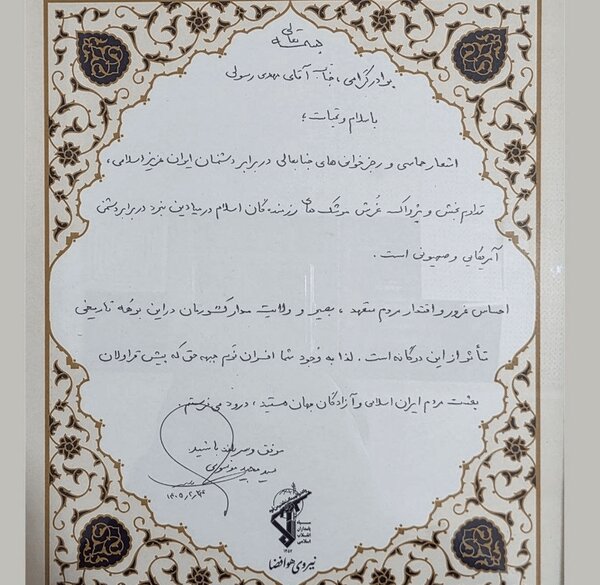 بسمه تعالی
برادر گرامی، جناب آقای مهدی رسولی
باسلام و تحیات؛
اشعار حماسی و رجزخوانی های جنابعالی در برابر دشمنان ایران عزیز اسلامی،
تداوم بخش و پژواک غرش موشک های رزمندگان اسلام در میادین نبرد در برابر دشمن
آمریکایی و صهیونی است.
احساس غرور و اقتدار مردم متعهد، بصیر و ولایت مدار کشورمان در این برهه تاریخی
متأثر از این دوگانه است. لذا به وجود شما افسران نرم جبهه حق که پیش قراولان
بعثت مردم ایران اسلامی و آزادگان جهان هستید، درود می فرستم.
موفق و سربلند باشید
سید مجید موسوی
۱۴۰۵/۲/۲۴
سپاه
پاسداران
انقلاب
اسلامی
۱۳۵۷
نیروی هوافضا